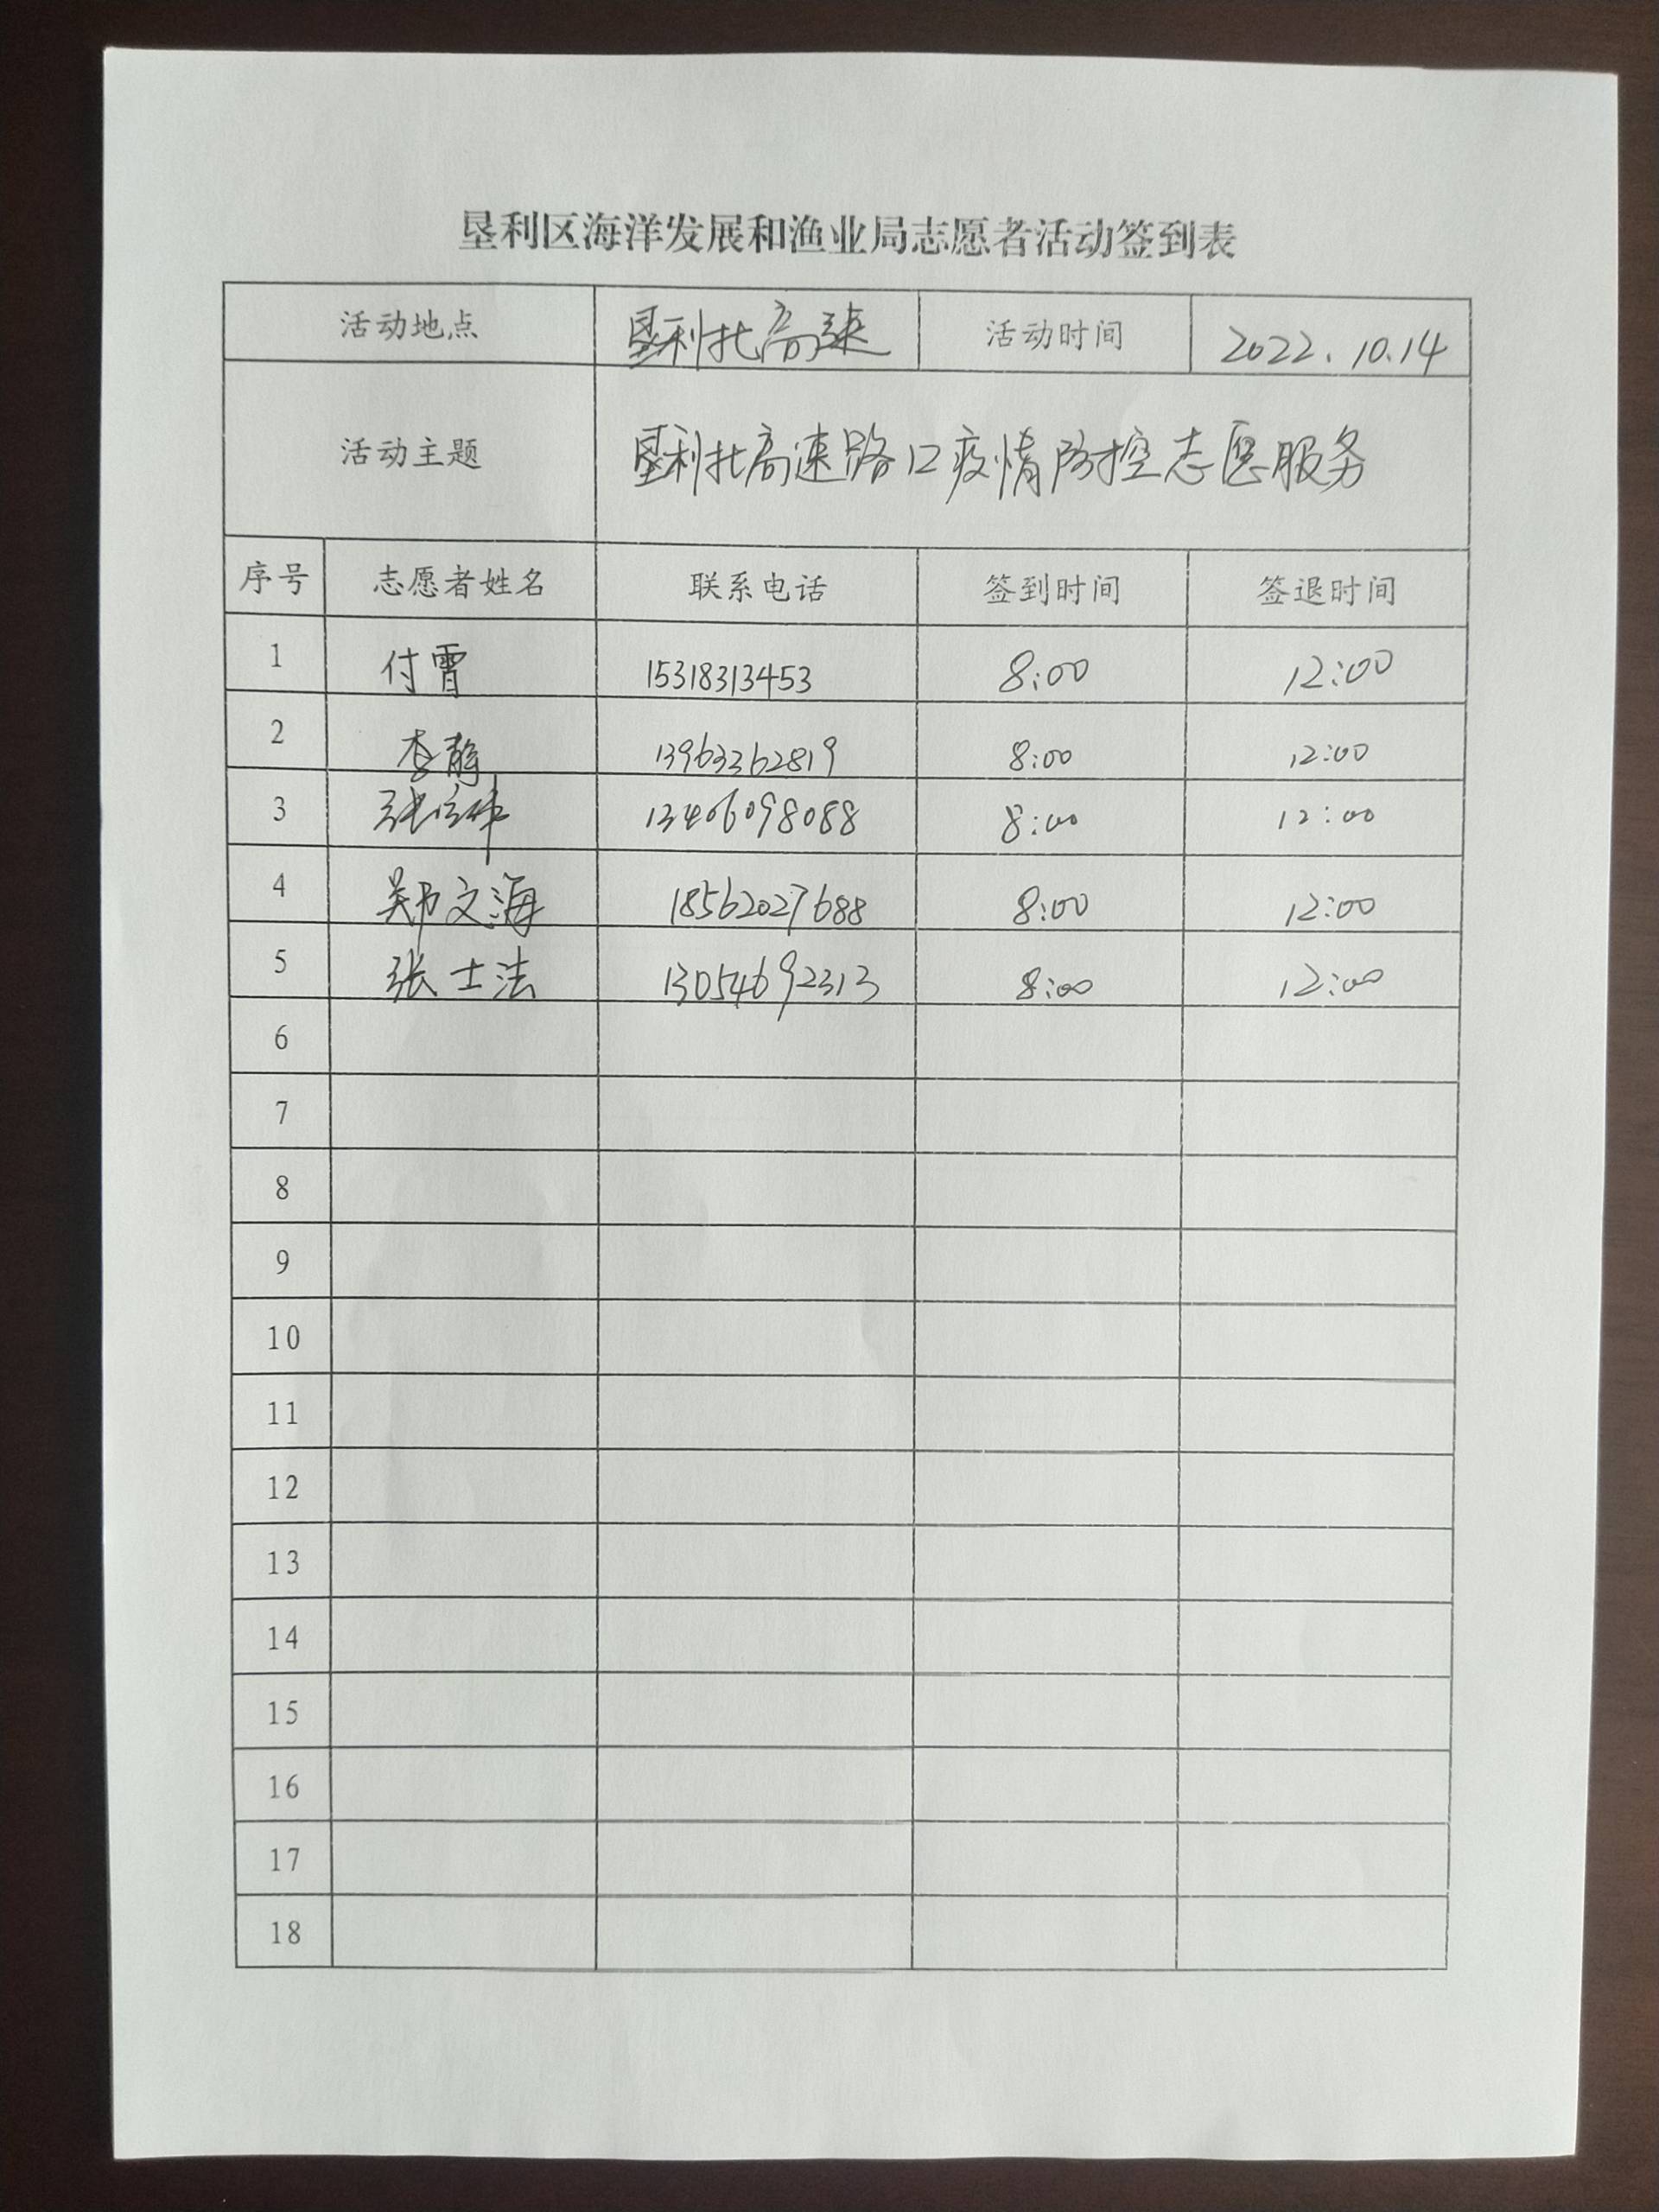 垦利区海洋发展和渔业局志愿者活动签到表
活动地点 垦利北高速 活动时间 2022.10.14
活动主题 垦利北高速路口疫情防控志愿服务
序号 志愿者姓名 联系电话 签到时间 签退时间
1 付霄 15318313453 8:00 12:00
2 李静 13963362819 8:00 12:00
3 13406098088 8:00 12:00
4 郑文海 18562027688 8:00 12:00
5 张士法 13054692313 8:00 12:00
6
7
8
9
10
11
12
13
14
15
16
17
18